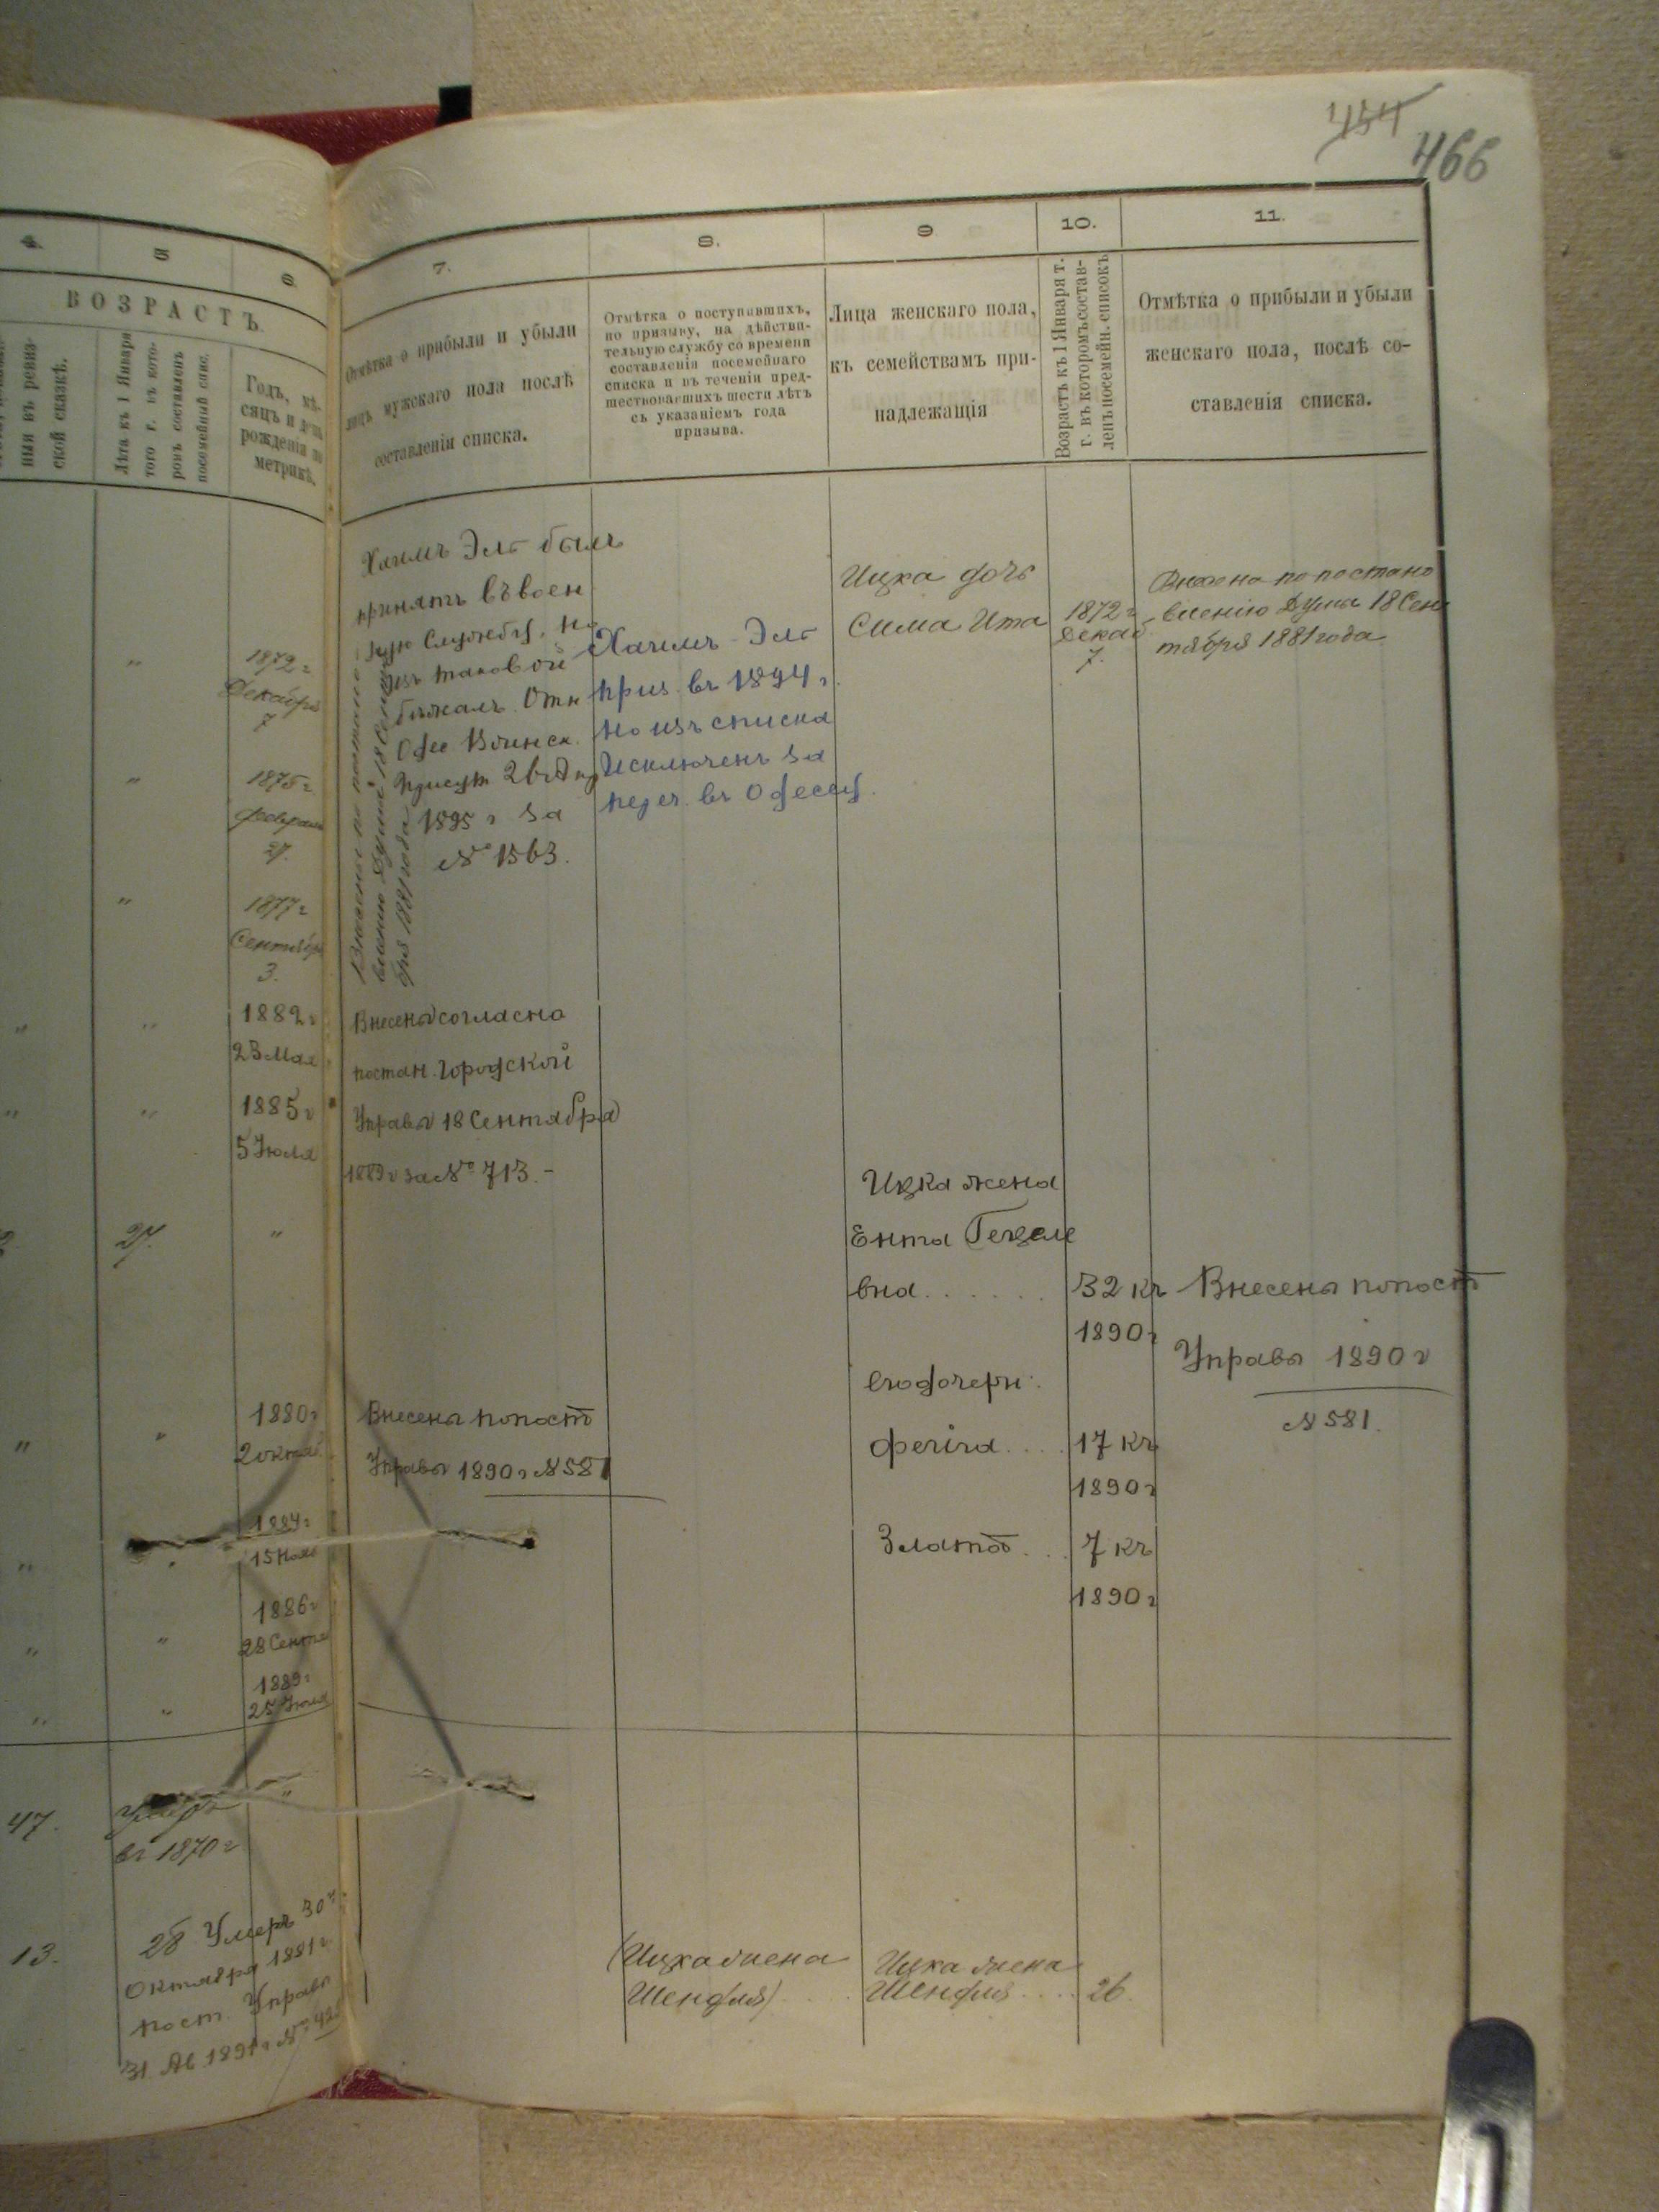 454
466
4.
5
6.
7.
8.
9
10.
11.
ВОЗРАСТЪ.
ныя въ ревиз-
ской сказкѣ.
Лѣта къ 1 Января
того г. въ кото-
ромъ составленъ
посемейный спис.
Годъ, мѣ-
сяцъ и день
рожденія по
метрикѣ.
Отмѣтка о прибыли и убыли
лицъ мужскаго пола послѣ
составленія списка.
Отмѣтка о поступившихъ,
по призыву, на дѣйстви-
тельную службу со времени
составленія посемейнаго
списка и въ теченіи пред-
шествовавшихъ шести лѣтъ
съ указаніемъ года
призыва.
Лица женскаго пола,
къ семействамъ при-
надлежащія
Возрастъ къ 1 Января т.
г. въ которомъ состав-
ленъ посемейн. списокъ
Отмѣтка о прибыли и убыли
женскаго пола, послѣ со-
ставленія списка.
"
1872 г
Декабря
7
"
1875 г.
Февраля
27.
"
1877 г
Сентября
3.
Хаимъ Эль былъ
принятъ въ воен
ную Службу, но
изъ таковой
бѣжалъ. Отн
Одес Воинск.
Присут 2
1895 г за
№ 1563.
Внесены по постано
влению Думы 18 Сентя
бря 1881 года
Хаимъ-Эль
приз. въ 1894 г.
но изъ списка
исключенъ за
въ Одессу.
Ицка дочь
Сима Ита
1872 г
Декаб
7.
Внесена по постано
влению Думы 18 Сен
тября 1881 года
"
"
1882 г
23 Мая
"
"
1885 г
5 Июля
Внесены согласно
постан. Городской
Управы 18 Сентября
1889 г за № 713.-
27.
"
Ицка жена
Ента Гецеле
вна......
32 къ
1890 г
Внесены по пост
Управы 1890 г
№ 581.
его дочери:
"
"
1880 г
2 октяб
Внесены по пост
Управы 1890 г № 581
Фейга....
17 къ
1890 г
"
"
1884 г
15
Злата...
7 къ
1890 г
"
"
1886 г
28 Сентя
"
"
1889 г
25 Июля
47.
умеръ
въ 1870 г
"
13.
28 Умеръ 30
Октября 1881 г
пост. Управы
31 Ав 1891 г №
(Ицка жена
Шендля)....
Ицка жена
Шендля....
26.